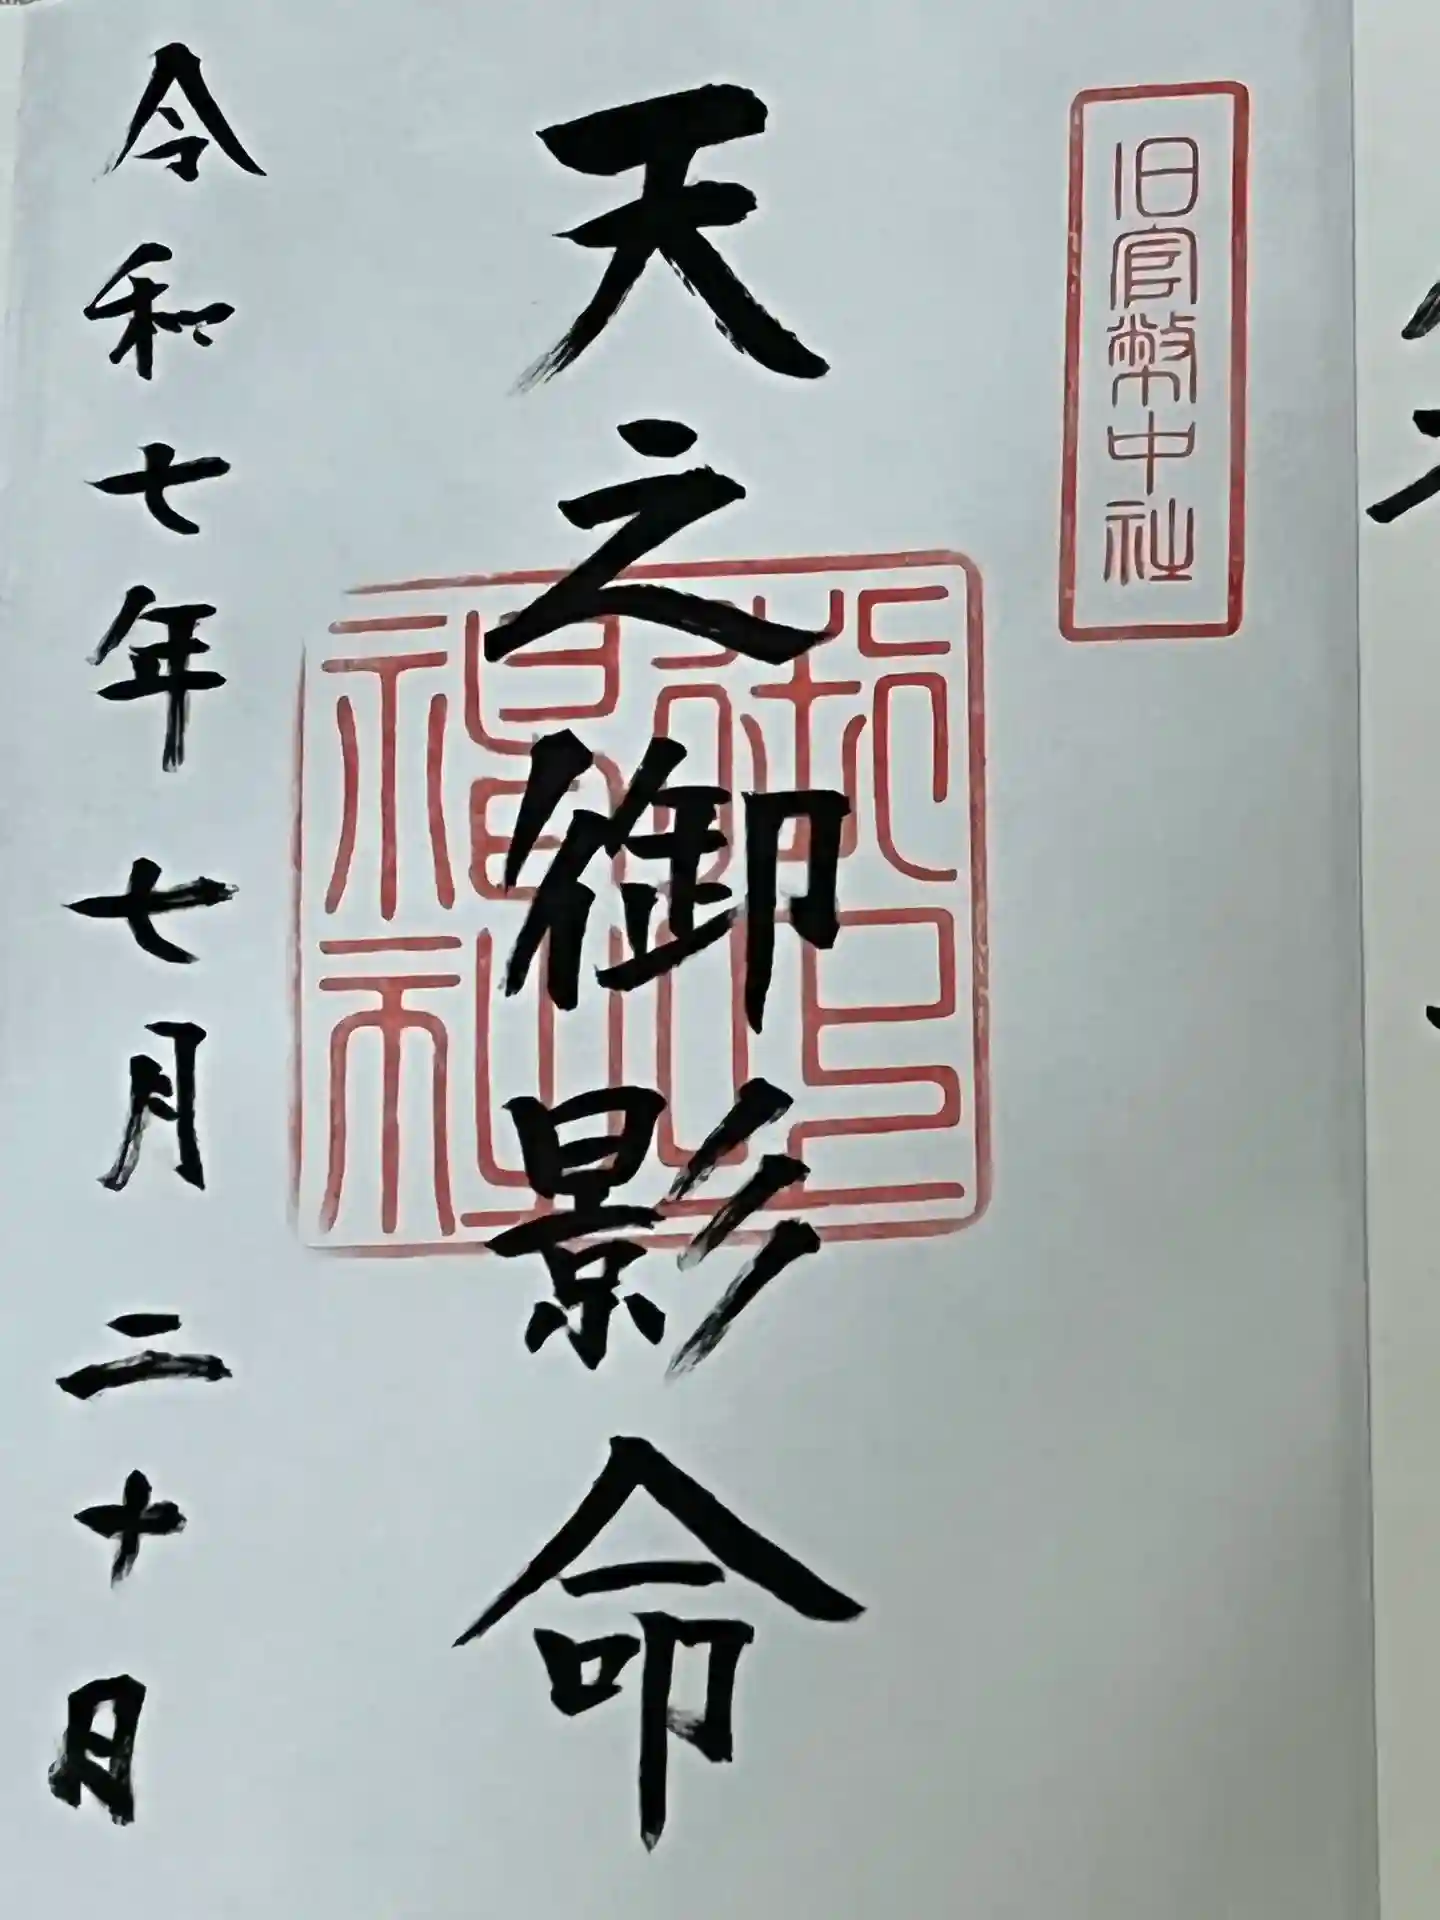 旧官幣中社
天之御影命
御上神社
令和七年七月二十日